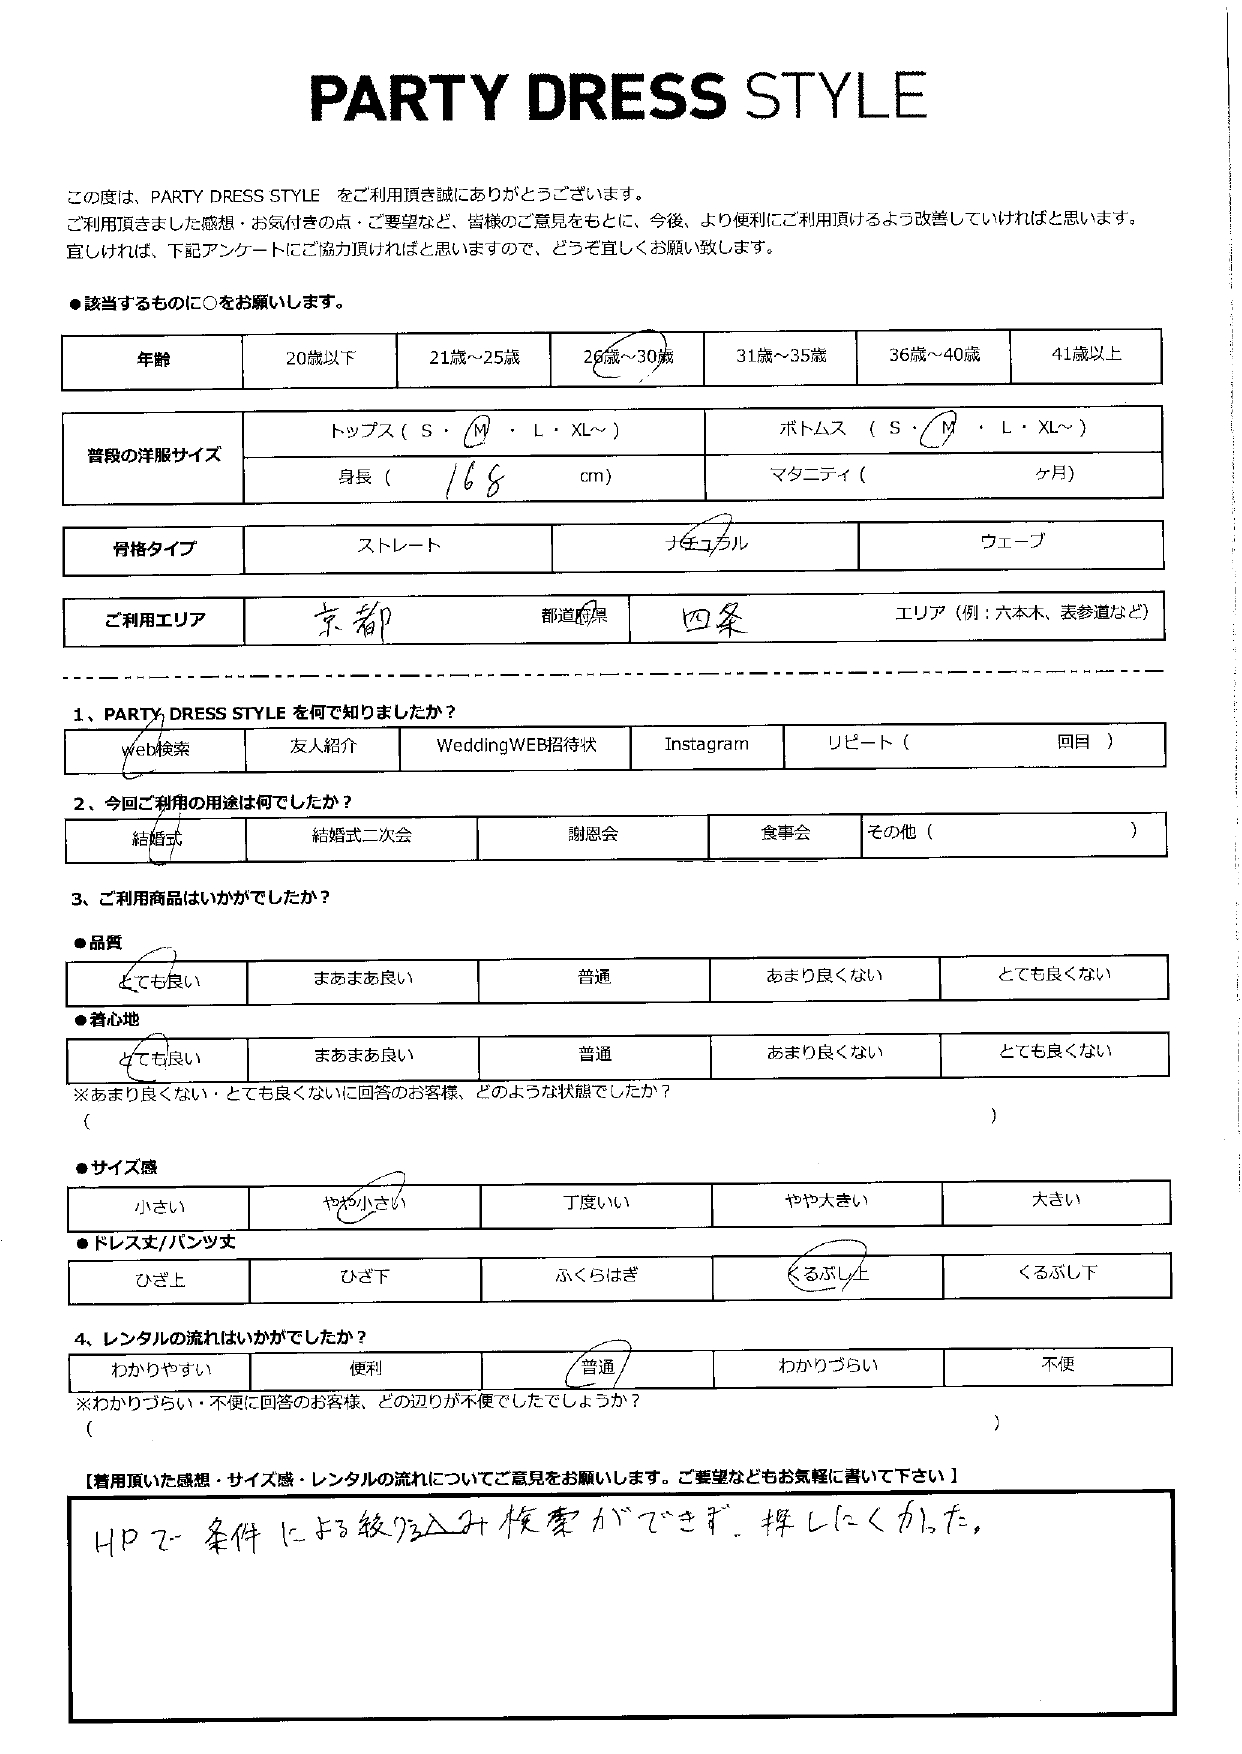 PARTY DRESS STYLE
この度は、PARTY DRESS STYLE をご利用頂き誠にありがとうございます。
ご利用頂きました感想・お気付きの点・ご要望など、皆様のご意見をもとに、今後、より便利にご利用頂けるよう改善していければと思います。
宜しければ、下記アンケートにご協力頂ければと思いますので、どうぞ宜しくお願い致します。
●該当するものに○をお願いします。
年齢 20歳以下 21歳～25歳 26歳～30歳 31歳～35歳 36歳～40歳 41歳以上
普段の洋服サイズ トップス ( S ・ M ・ L ・ XL～ ) ボトムス ( S ・ M ・ L ・ XL～ )
身長 ( 168 cm) マタニティ ( ヶ月)
骨格タイプ ストレート ナチュラル ウェーブ
ご利用エリア 京都 都道府県 四条 エリア（例：六本木、表参道など）
1、PARTY DRESS STYLE を何で知りましたか？
web検索 友人紹介 WeddingWEB招待状 Instagram リピート ( 回目 )
2、今回ご利用の用途は何でしたか？
結婚式 結婚式二次会 謝恩会 食事会 その他 ( )
3、ご利用商品はいかがでしたか？
●品質
とても良い まあまあ良い 普通 あまり良くない とても良くない
●着心地
とても良い まあまあ良い 普通 あまり良くない とても良くない
※あまり良くない・とても良くないに回答のお客様、どのような状態でしたか？
( )
●サイズ感
小さい やや小さい 丁度いい やや大きい 大きい
●ドレス丈/パンツ丈
ひざ上 ひざ下 ふくらはぎ くるぶし上 くるぶし下
4、レンタルの流れはいかがでしたか？
わかりやすい 便利 普通 わかりづらい 不便
※わかりづらい・不便に回答のお客様、どの辺りが不便でしたでしょうか？
( )
【着用頂いた感想・サイズ感・レンタルの流れについてご意見をお願いします。ご要望などもお気軽に書いて下さい】
HPで条件による絞り込み検索ができず、探しにくかった。